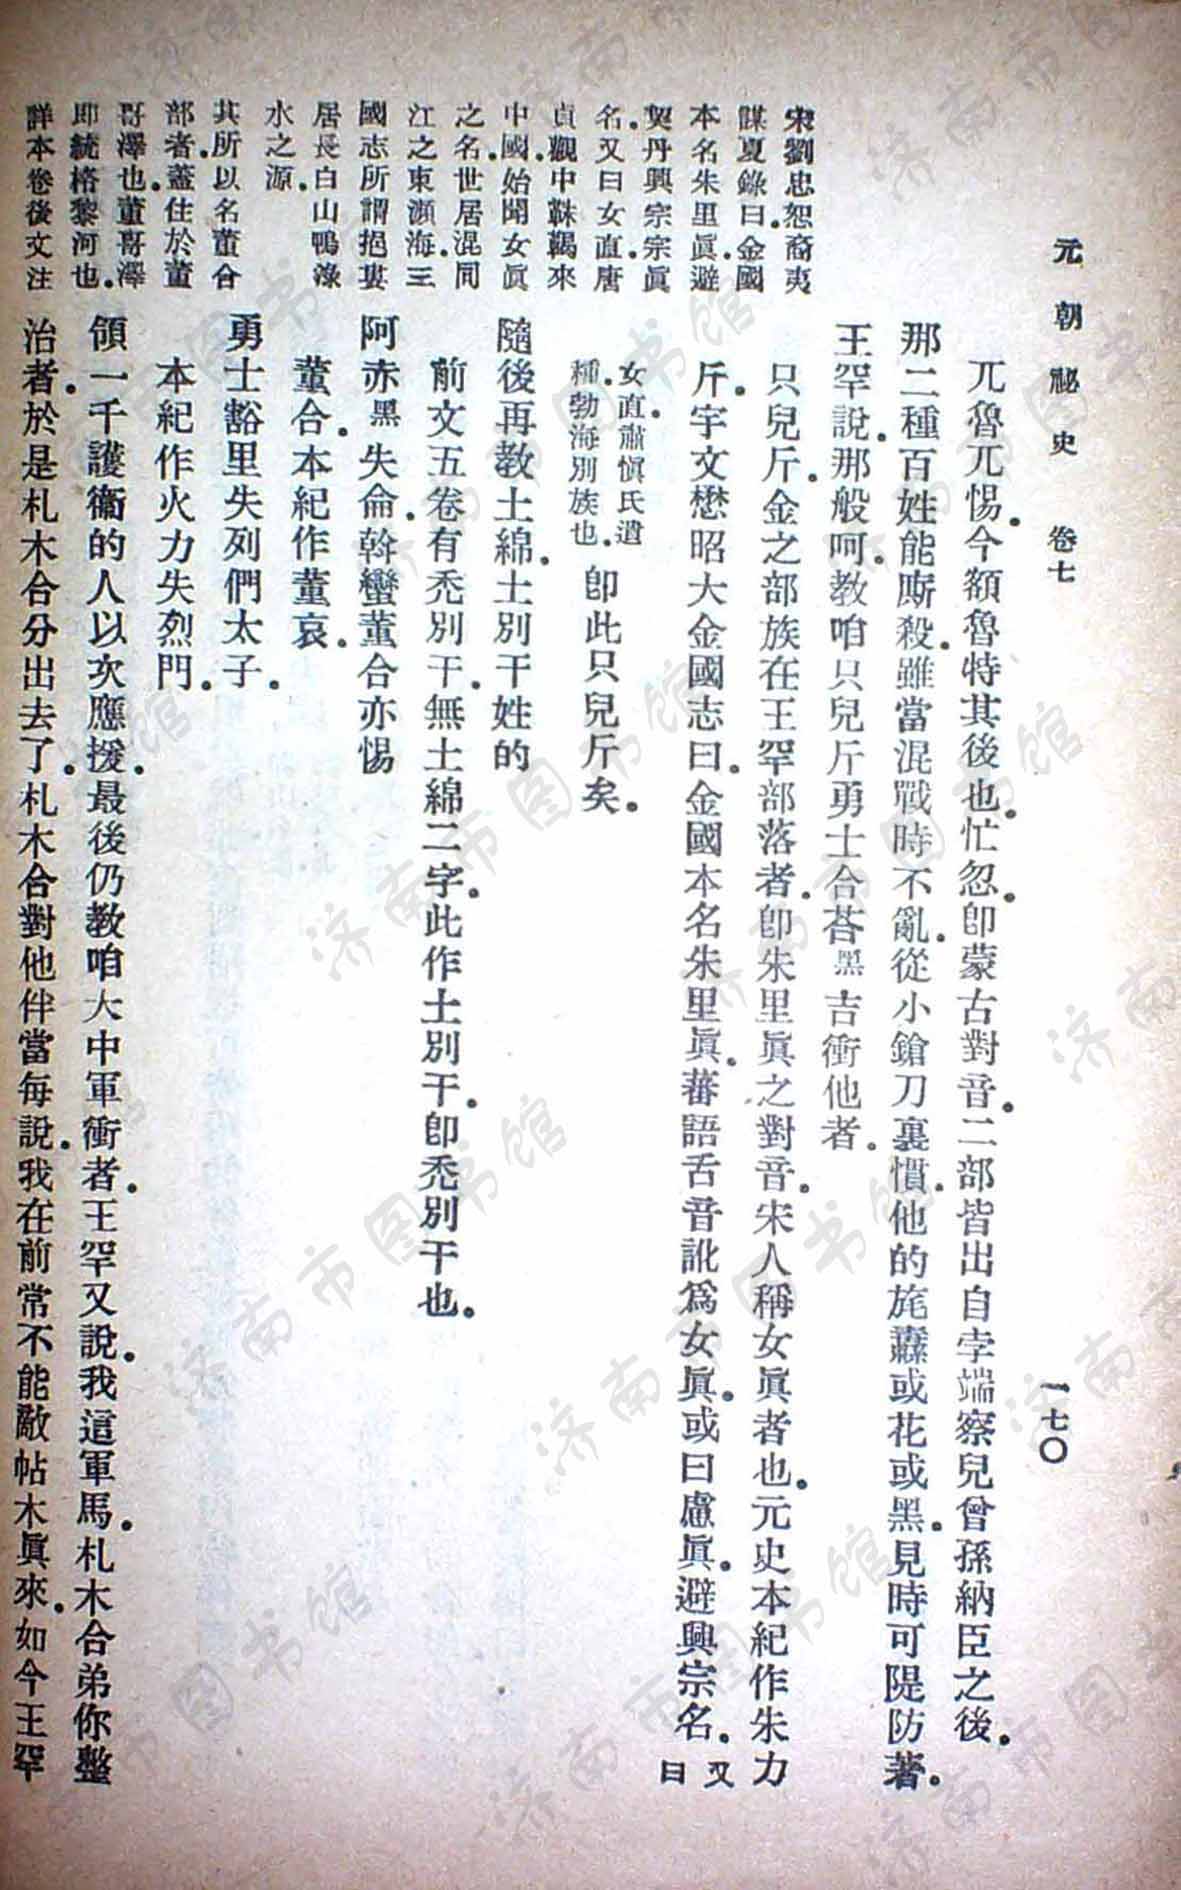 元朝祕史 卷七 一七〇
宋劉忠恕裔夷
謀夏錄曰金國
本名朱里眞避
契丹興宗宗眞
名又曰女直唐
貞觀中靺鞨來
中國始聞女眞
之名世居混同
江之東瀕海三
國志所謂挹婁
居長白山鴨淥
水之源
其所以名董合
部者蓋住於董
哥澤也董哥澤
即統格黎河也
詳本卷後文注
兀魯兀惕今額魯特其後也忙忽卽蒙古對音二部皆出自孛端察兒曾孫納臣之後
那二種百姓能廝殺雖當混戰時不亂從小鎗刀裏慣他的旄纛或花或黑見時可隄防著
王罕說那般呵教咱只兒斤勇士合荅黑吉衝他者
只兒斤金之部族在王罕部落者卽朱里眞之對音宋人稱女眞者也元史本紀作朱力
斤宇文懋昭大金國志曰金國本名朱里眞蕃語舌音訛爲女眞或曰慮眞避興宗名又曰
女直肅愼氏遺種勃海別族也 卽此只兒斤矣
隨後再教土綿土別干姓的
前文五卷有禿別干無土綿二字此作土別干卽禿別干也
阿赤黑失侖斡蠻董合亦惕
董合本紀作董哀
勇士豁里失列們太子
本紀作火力失烈門
領一千護衞的人以次應援最後仍教咱大中軍衝者王罕又說我這軍馬札木合弟你整
治者於是札木合分出去了札木合對他伴當每說我在前常不能敵帖木眞來如今王罕